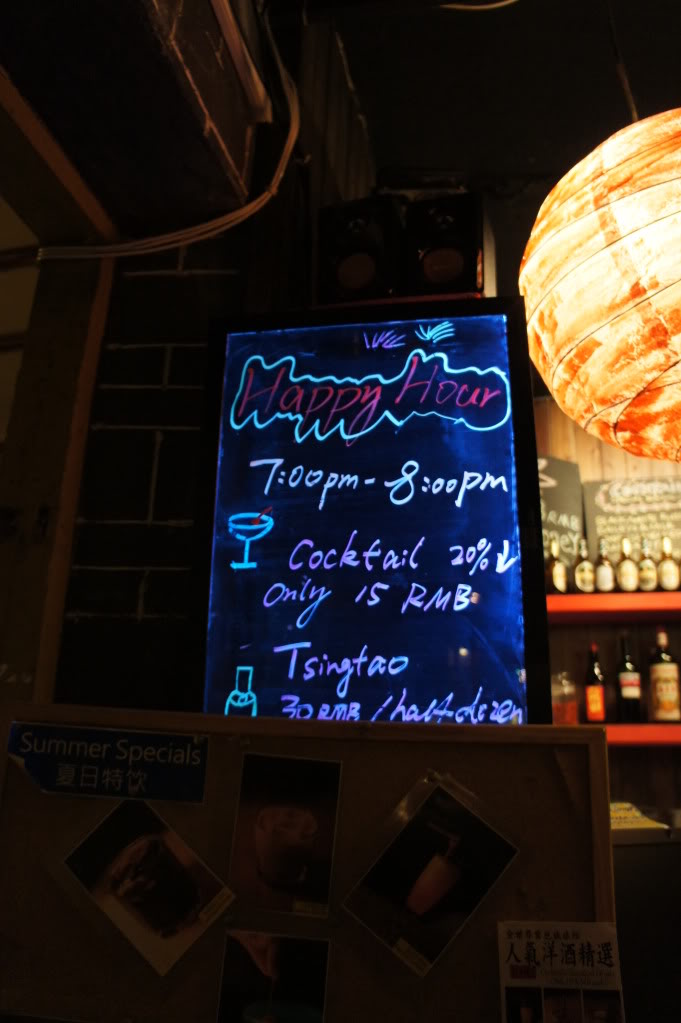 Happy Hour
7:00pm - 8:00pm
Cocktail 20% ↓
Only 15 RMB
Tsingtao
30 RMB / half dozen
Summer Specials
夏日特饮
人氣洋酒精選